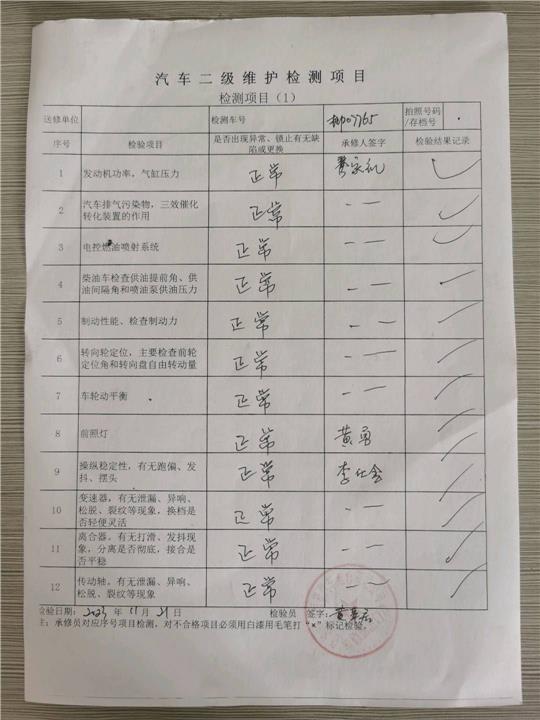 汽车二级维护检测项目
检测项目（1）
送修单位 检测车号 07765 拍照号码/存档号
序号 检验项目 是否出现异常、锁止有无缺陷或更换 承修人签字 检验结果记录
1 发动机功率，气缸压力 正常
2 汽车排气污染物，三效催化转化装置的作用 正常 - -
3 电控燃油喷射系统 正常 - -
4 柴油车检查供油提前角、供油间隔角和喷油泵供油压力 正常 - -
5 制动性能、检查制动力 正常 - -
6 转向轮定位，主要检查前轮定位角和转向盘自由转动量 正常 - -
7 车轮动平衡 正常 - -
8 前照灯 正常 黄勇
9 操纵稳定性，有无跑偏、发抖、摆头 正常 李仕会
10 变速器，有无泄漏、异响、松脱、裂纹等现象，换档是否轻便灵活 正常 - -
11 离合器，有无打滑、发抖现象，分离是否彻底，接合是否平稳 正常 - -
12 传动轴，有无泄漏、异响、松脱、裂纹等现象 正常 - -
检验日期：2023 年 11 月 21 日 检验员 签字：
注：承修员对应序号项目检测，对不合格项目必须用白漆用毛笔打“×”标记检验。